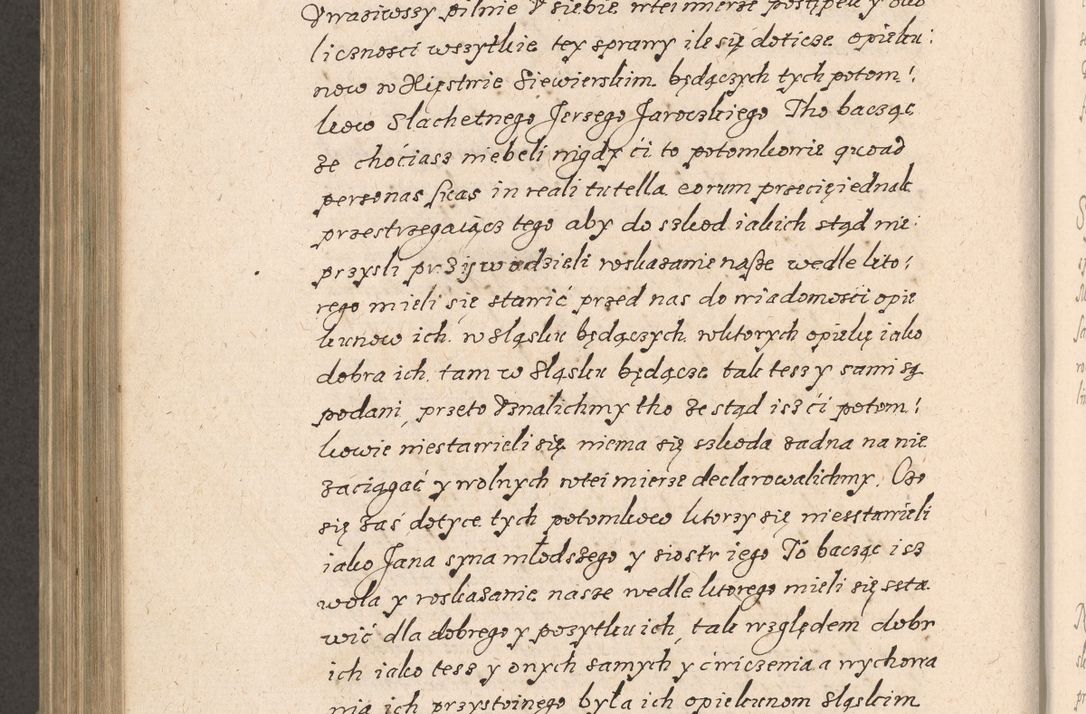 Vwaziwszy pilnie v siebie wtei mierze postępek y oko
licznosci wszytkie tey sprawy ile się doticze opieku:
now w Xięstwie Siewierskim będączych tych potom:
kow Slachetnego Jerzego Jarowskiego Tho bacząc
że chociasz niebeli nigdy ci to potomkowie quoad
personas suas in reali tutella eorum przecię iednak
przestrzegaiącz tego aby do szkod iakich stąd nie:
przysli przywodzieli roskazanie nasze wedle kto:
rego mieli się stawić przed nas do wiadomosci opie
kunow ich w Sląsku będączych wktorych opiekę iako
dobra ich tam w Sląsku będące tak tesz y sami są
podani przeto vznalichmy tho że stąd isz ci potom:
kowie niestawieli się niema się szkoda żadna na nie
zaciągać y wolnych wtei mierze declarowalichmy. Czo
się zaś dotyce tych potomkow ktorzy się niesstawieli
iako Jana syna młodszego y siostr iego Tó bacząc isz
wola y roskazanie nasze wedle ktorego mieli się sta
wić dla dobrego y pozytku ich tak względem dobr
ich iako tesz y onych samych y ćwiczenia a wychowa
nia ich przystoinego była ich opiekunom sląskim